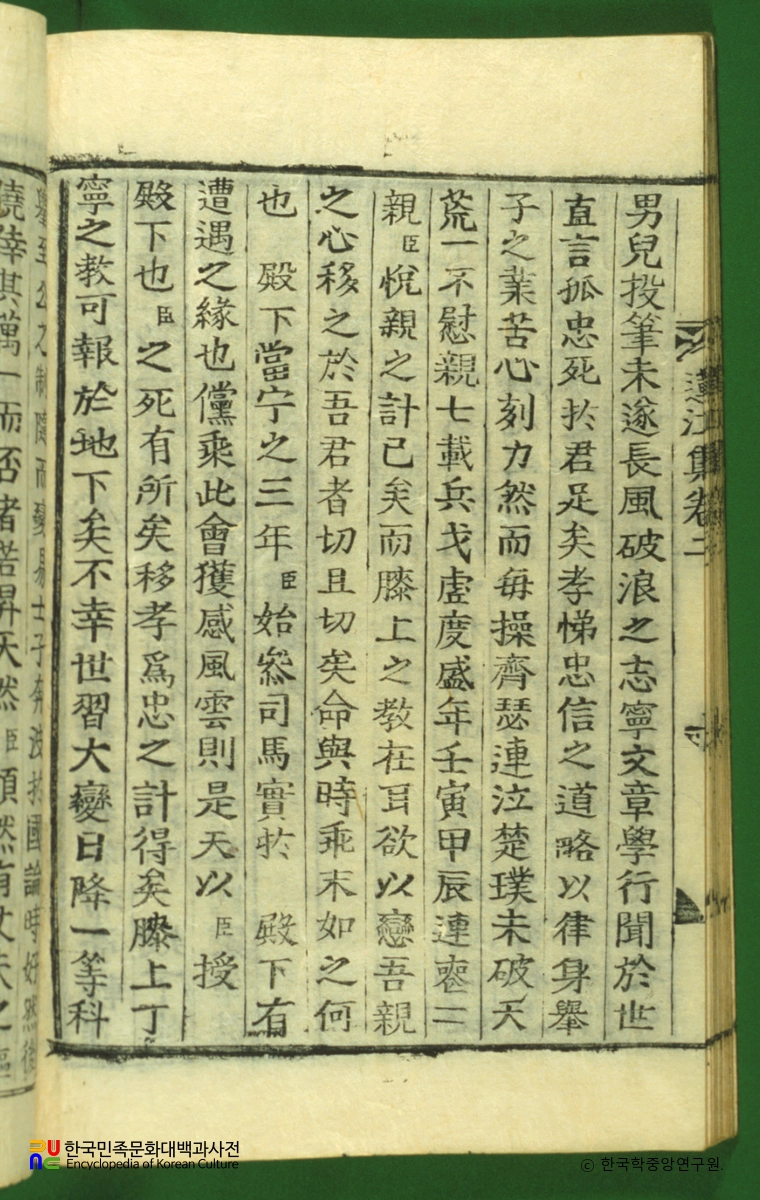 蓮江集卷二
男兒投筆未遂長風破浪之志寧文章學行聞於世
直言孤忠死扵君足矣孝悌忠信之道略以律身舉
子之業苦心刻力然而每操齊瑟連泣楚璞未破天
荒一不慰親七載兵戈虛度盛年壬寅甲辰連喪二
親臣悅親之計已矣而膝上之敎在耳欲以戀吾親
之心移之於吾君者切且切矣命與時乖末如之何
也 殿下當宁之三年臣始叅司馬實扵 殿下有
遭遇之緣也儻乘此會獲感風雲則是天以臣授
殿下也臣之死有所矣移孝爲忠之計得矣膝上丁
寧之敎可報於地下矣不幸世習大變日降一等科
擧至公之制隨而變易士子奔波扵國論時好然後
僥倖其萬一而否者若昇天然臣頑然有丈夫之
한국민족문화대백과사전
Encyclopedia of Korean Culture
© 한국학중앙연구원